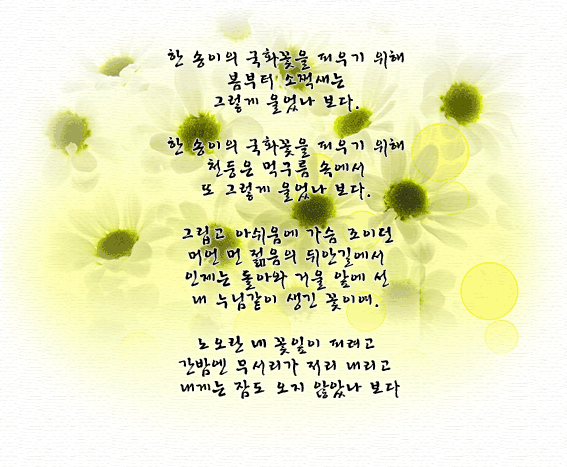 한 송이의 국화꽃을 피우기 위해
봄부터 소쩍새는
그렇게 울었나 보다.
한 송이의 국화꽃을 피우기 위해
천둥은 먹구름 속에서
또 그렇게 울었나 보다.
그립고 아쉬움에 가슴 조이던
머언 먼 젊음의 뒤안길에서
인제는 돌아와 거울 앞에 선
내 누님같이 생긴 꽃이여.
노오란 네 꽃잎이 피려고
간밤엔 무서리가 저리 내리고
내게는 잠도 오지 않았나 보다